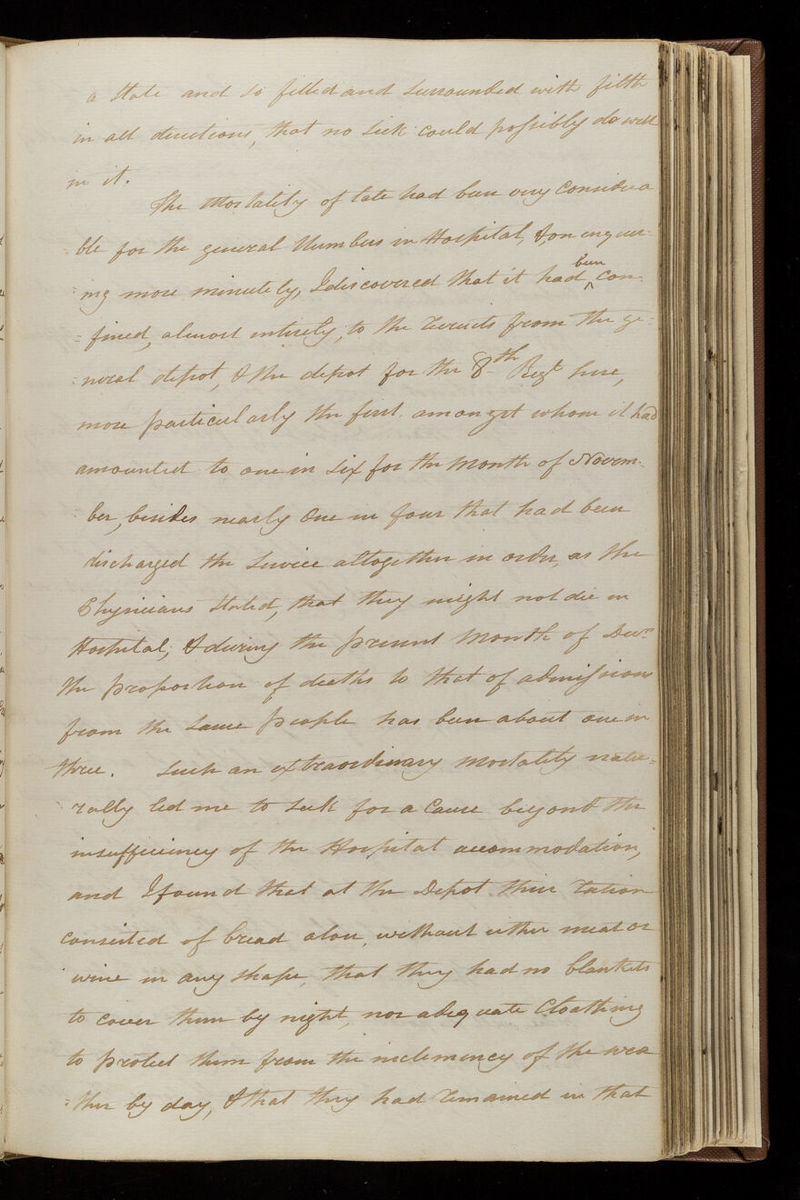 a state and so filled and surrounded with filth
in all directions, that no sick could possibly do well
in it.
The Mortality of late had been very considera
ble for the general Numbers in Hospital, & on enquir-
ing more minutely, I discovered that it had been con-
=fined, almost entirely, to the recruits from the ge-
neral depot, & the depot for the 8th Regt here,
more particularly the first amongst whom it had
amounted to one in six for the Month of Novem-
ber, besides nearly one in four that had been
discharged the Service altogether in order, as the
Physicians stated, that they might not die in
Hospital; & during the present Month of Decr
the proportion of deaths to that of admissions
from the same people has been about one in
three. Such an extraordinary Mortality natu=
rally led me to seek for a Cause beyond the
insufficiency of the Hospital accommodation,
and I found that at the Depot their ration
consisted of bread alone, without either meat or
wine in any shape, that they had no blankets
to cover them by night, nor adequate Cloathing
to protect them from the inclemency of the wea
=ther by day, & that they had remained in that